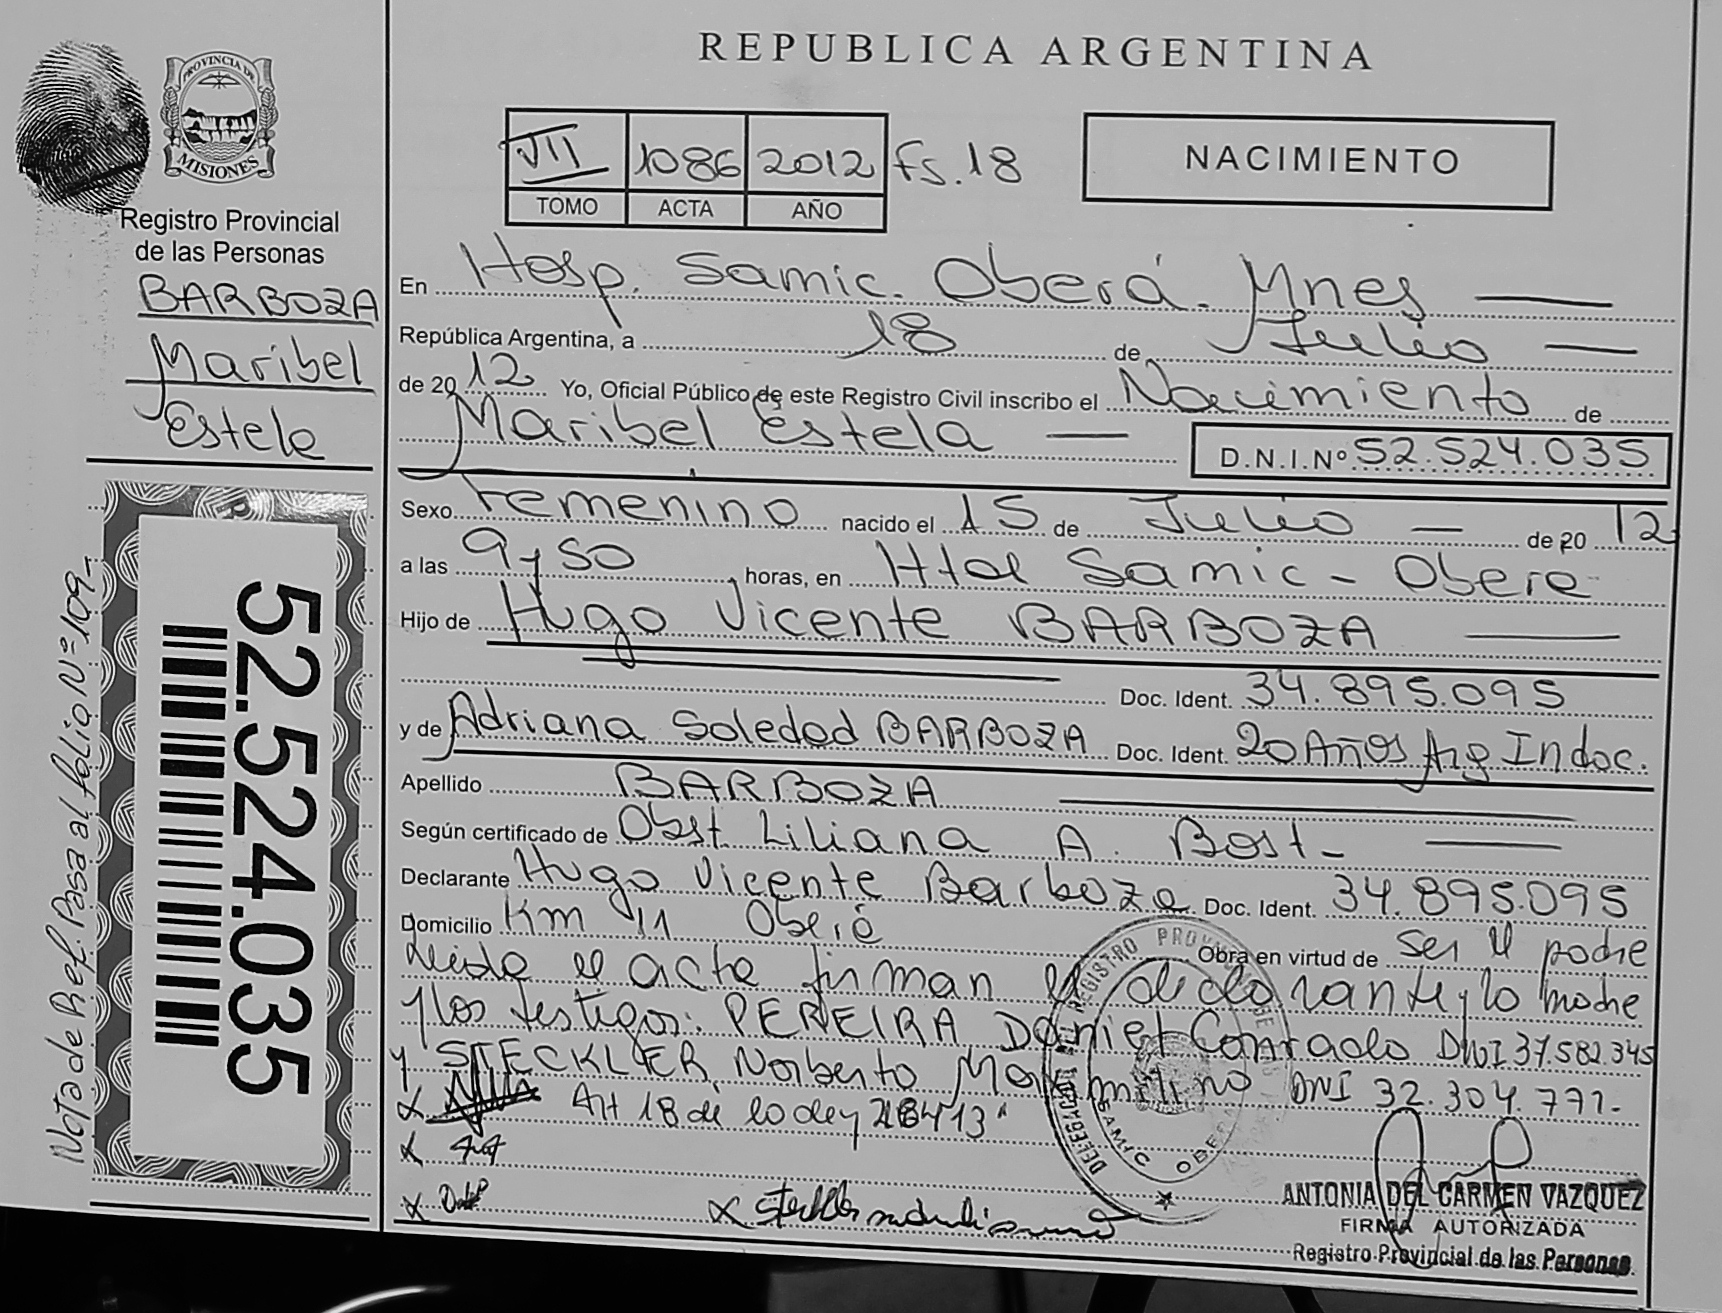 REPUBLICA ARGENTINA
PROVINCIA DE
MISIONES
Registro Provincial
de las Personas
BARBOZA
Maribel
Estela
52.524.035
Nota de Ref. Pasa al folio N° 109-
VII 1086 2012 Fs. 18
TOMO ACTA AÑO
NACIMIENTO
En Hosp. Samic. Oberá. Mnes
República Argentina, a 18 de Julio
de 2012 Yo, Oficial Público de este Registro Civil inscribo el Nacimiento de
Maribel Estela D.N.I.Nº 52.524.035
Sexo Femenino nacido el 15 de Julio de 2012
a las 9y50 horas, en Htal Samic - Obera
Hijo de Hugo Vicente BARBOZA
Doc. Ident. 34.895.095
y de Adriana Soledad BARBOZA Doc. Ident. 20 Años Arg Indoc.
Apellido BARBOZA
Según certificado de Obst. Liliana A. Bost-
Declarante Hugo Vicente Barboza Doc. Ident. 34.895.095
Domicilio Km 11 Oberá Obra en virtud de ser el padre
Leida el acta firman el declarante, la madre
y los testigos: PEREIRA, Daniel Conrado DNI 37.582.345
y STECKLER, Norberto Maximiliano DNI 32.304.771.
x Art 18 de la Ley 26413"
x
x x
REGISTRO PROVINCIAL DE
DELEGACION
SAMIC OBERA
ANTONIA DEL CARMEN VAZQUEZ
FIRMA AUTORIZADA
Registro Provincial de las Personas